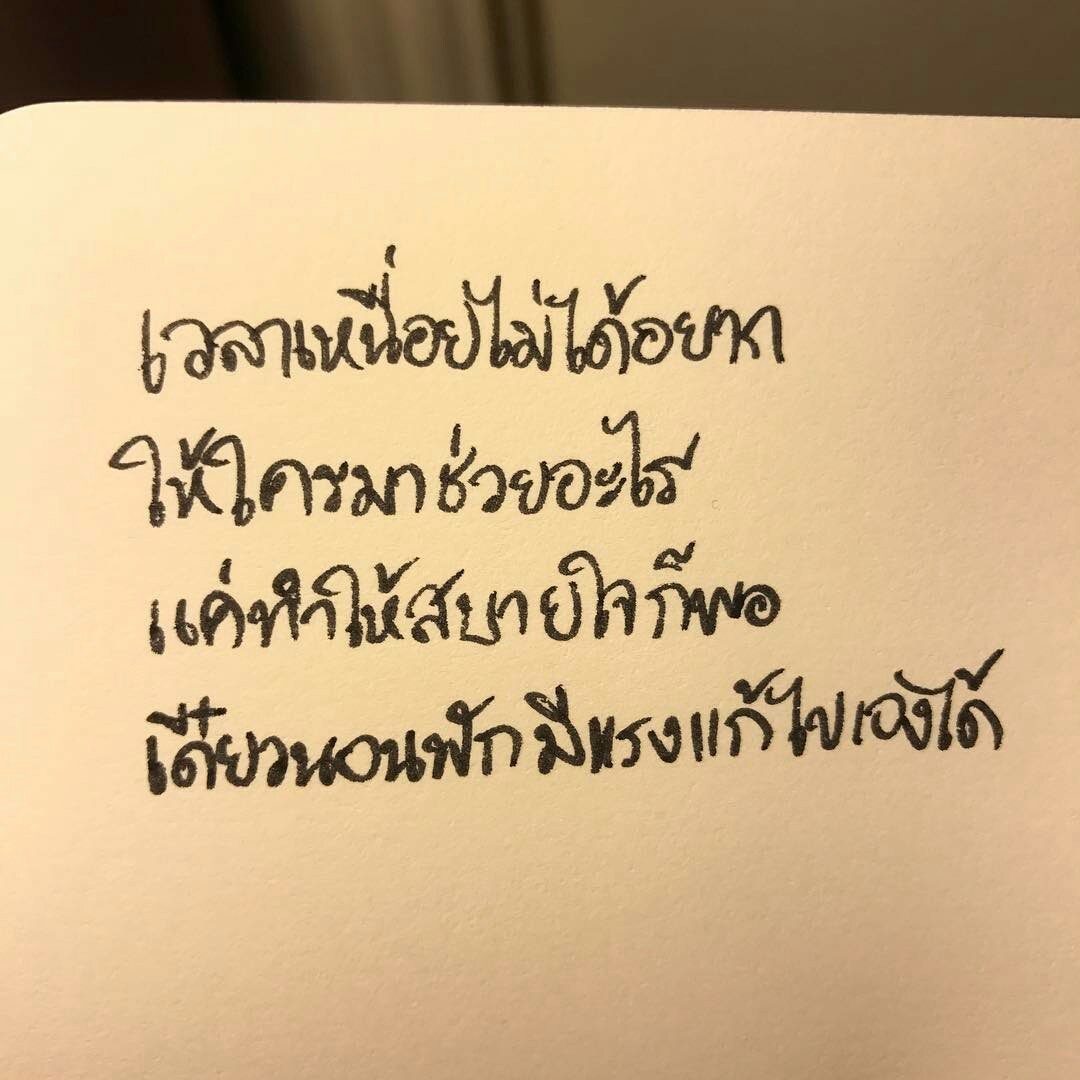 เวลาเหนื่อยไม่ได้อยาก
ให้ใครมาช่วยอะไร
แค่ทำให้สบายใจก็พอ
เดี๋ยวนอนพักมีแรงแก้ไขเองได้